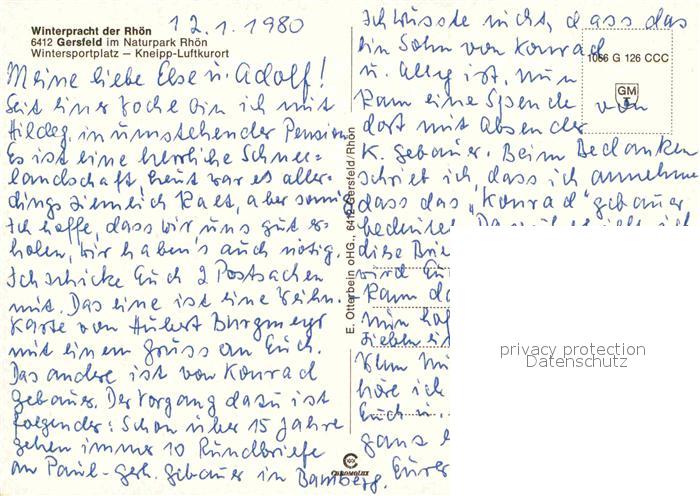 Winterpracht der Rhön
6412 Gersfeld im Naturpark Rhön
Wintersportplatz – Kneipp-Luftkurort
12.1.1980
Meine liebe Else u. Adolf!
Seit einer Woche bin ich mit
Hildeg. in umstehender Pension
Es ist eine herrliche Schnee=
landschaft heut war es aller=
dings ziemlich kalt, aber sonnig
Ich hoffe, dass wir uns gut er=
holen, wir haben's auch nötig.
Ich schicke Euch 2 Postsachen
mit. Das eine ist eine Weihn.
Karte von Hubert Burgmeyr
mit einem Gruss an Euch.
Das andere ist von Konrad
Gebauer. Der Vorgang dazu ist
folgender: Schon über 15 Jahre
gehen immer 10 Rundbriefe
an Paul-Gerh. Gebauer in Bamberg.
E. Otterbein oHG., 6412 Gersfeld/Rhön
CHROMOLUX
Ich wusste nicht, dass das
ein Sohn von Konrad
u. ist. Nun
kam eine Spende von
dort mit Absender
K. Gebauer. Beim Bedanken
schrieb ich, dass ich annehme
dass das "Konrad" Gebauer
bedeutet.
diese
wird
kam
hof
lieben
Wenn
höre ich
Euch u.
ganz
Eurer
1066 G 126 CCC
GM
privacy protection
Datenschutz